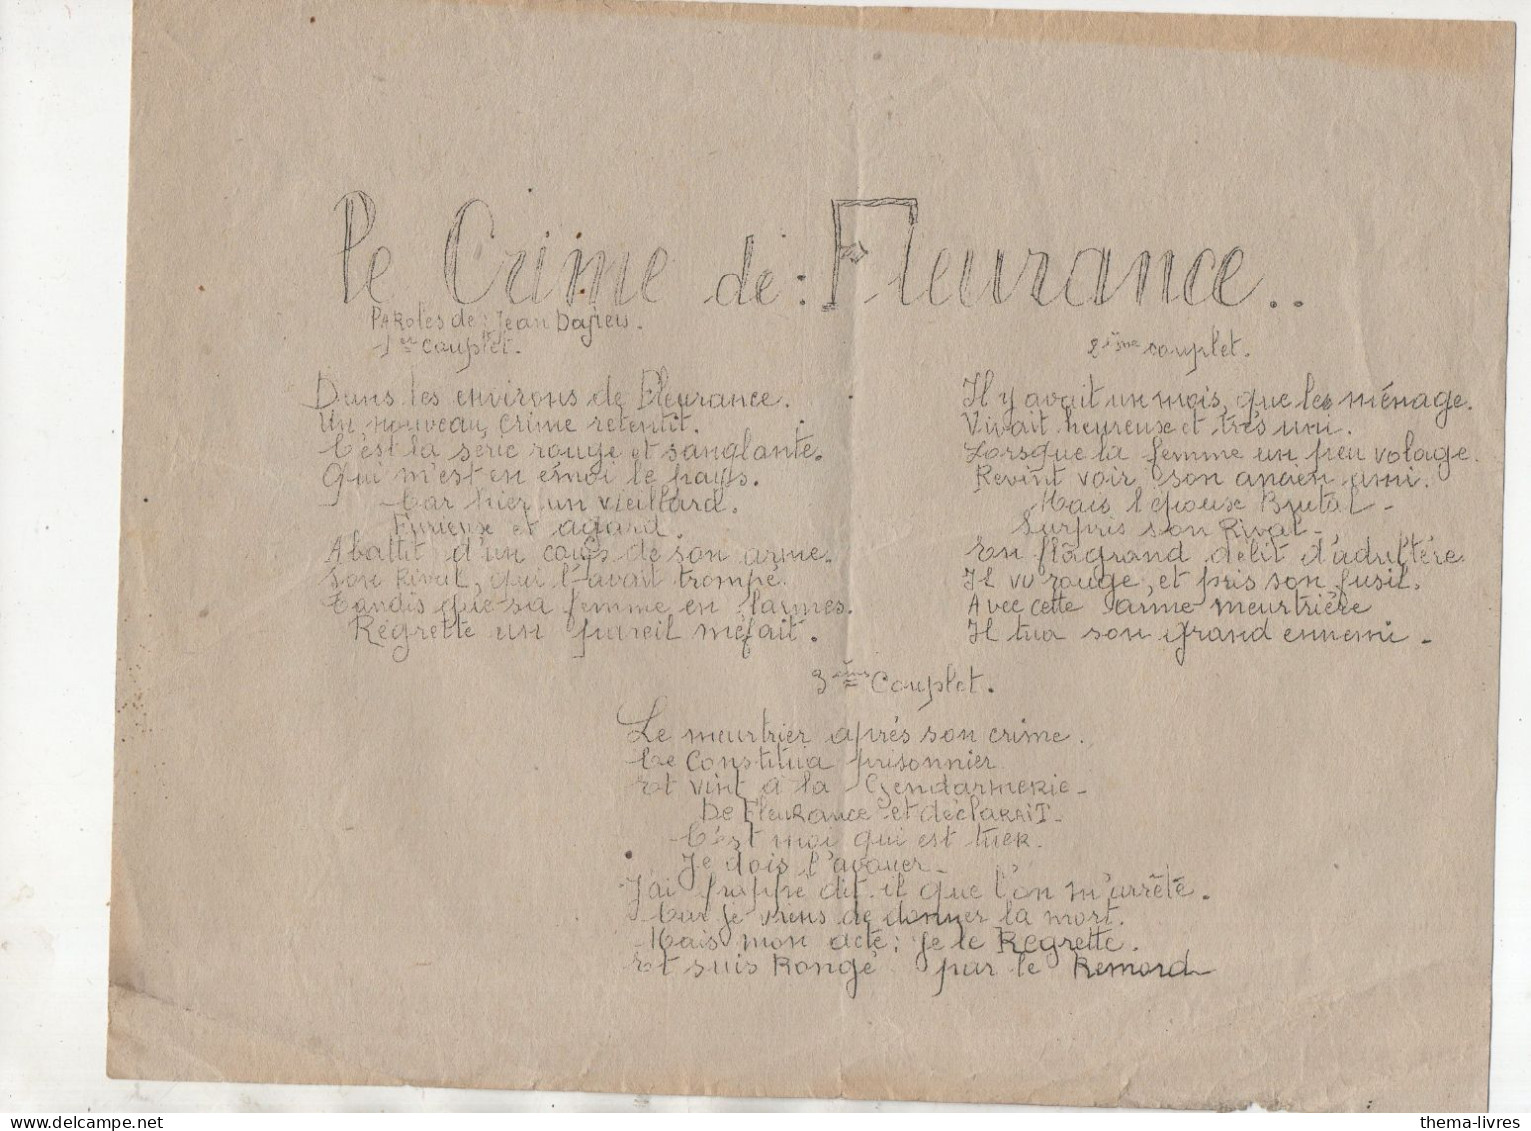 Le Crime de : Fleurance..
Paroles de : Jean Dajieu.
1er Couplet.
Dans les environs de Fleurance.
Un nouveau crime retentit.
C'est la série rouge et sanglante.
Qui m'est en émoi le pays.
Car hier un vieillard.
Furieuse et agard.
Abattit d'un coup de son arme.
Son Rival, qui l'avait trompé.
Tandis que sa femme en larmes.
Régrette un pareil méfait.
2ième couplet.
Il y avait un mois, que les ménage.
Vivait heureux et très uni.
Lorsque la femme un peu volage.
Revint voir son ancien ami.
Mais l'époux Brutal -
Surpris son Rival -
En flagrand délit d'adultére
Il vu rouge, et pris son fusil.
Avec cette arme meurtrière
Il tua son grand ennemi -
3ème Couplet.
Le meurtrier aprés son crime.
Ce Constitua prisonnier
Et vint à la Gendarmerie -
De Fleurance et déclarait -
C'est moi qui est tuer.
Je dois l'avouer -
J'ai frappé dit-il que l'on m'arrêté.
Car je viens de donner la mort.
Mais mon acte ; je le Regrette.
Et suis Rongé par le Remord
thema-livres
www.delcampe.net